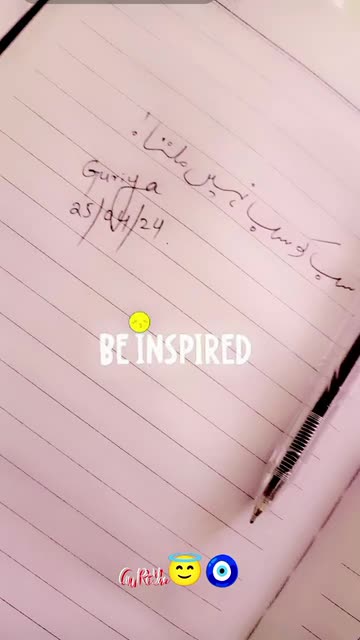 سب کو سب نہیں ملتا!
Guriya
25/04/24
BE INSPIRED